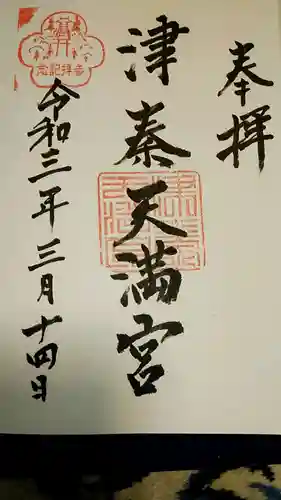 奉拝
津秦天満宮
令和三年三月十四日
参拝記念